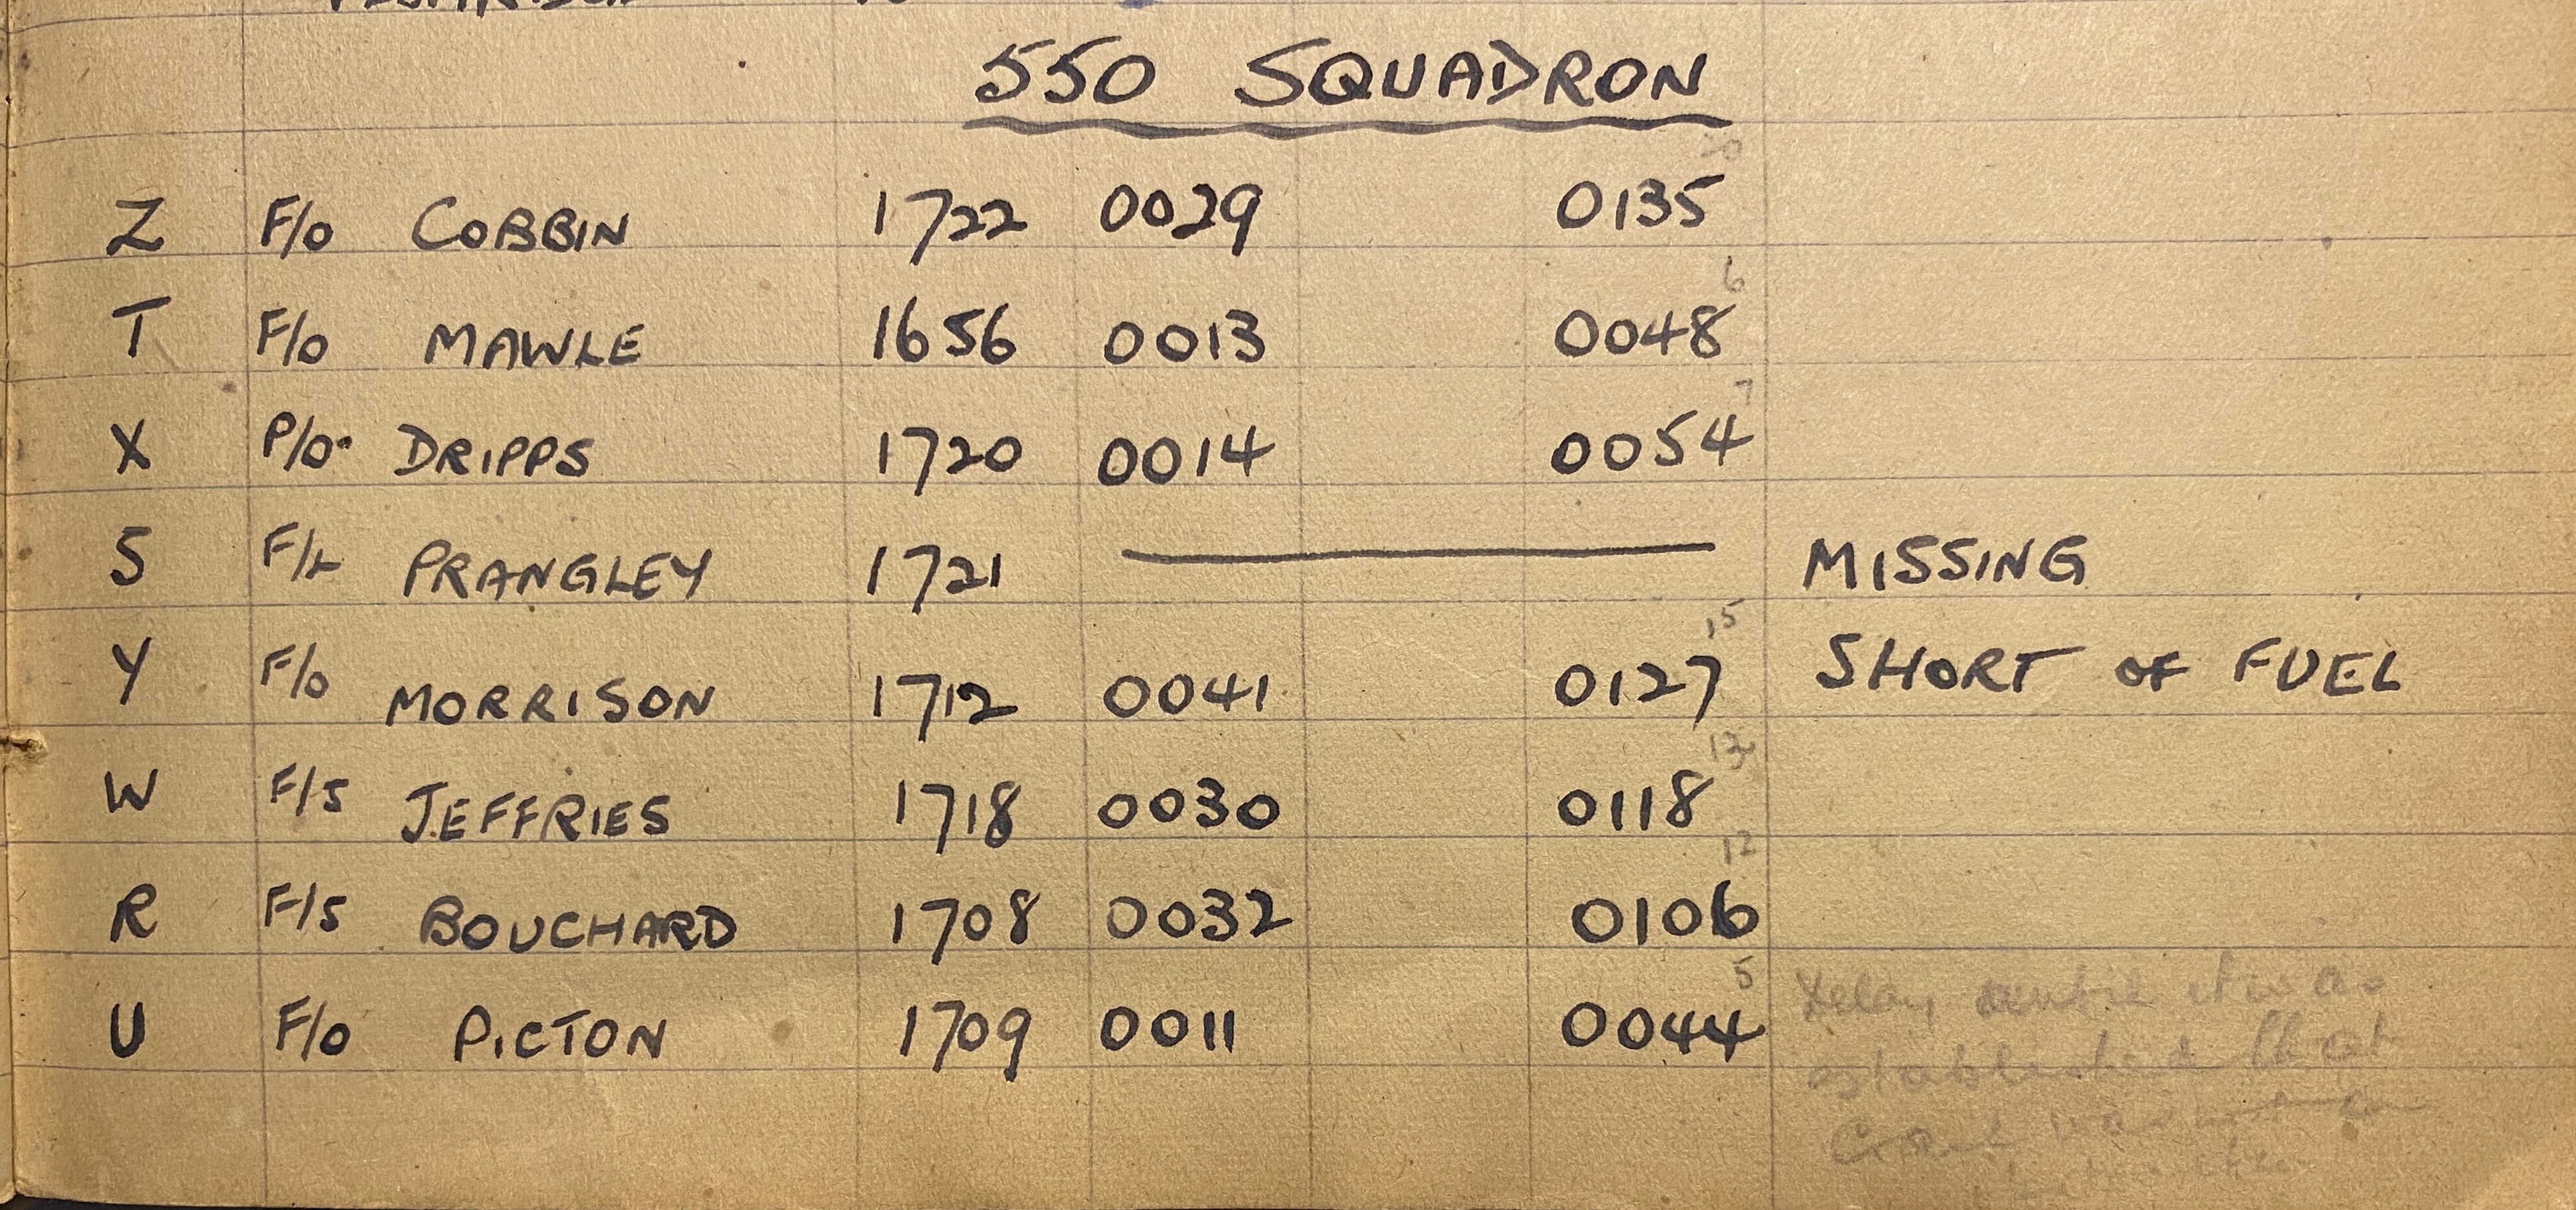 550 SQUADRON
Z F/O COBBIN 1722 0029 0135
6
T F/O MAWLE 1656 0013 0048
7
X P/O. DRIPPS 1720 0014 0054
S F/L PRANGLEY 1721 MISSING
15
Y F/O MORRISON 1712 0041 0127 SHORT OF FUEL
13
W F/S JEFFRIES 1718 0030 0118
12
R F/S BOUCHARD 1708 0032 0106
5
U F/O PICTON 1709 0011 0044
it was
established that
was not